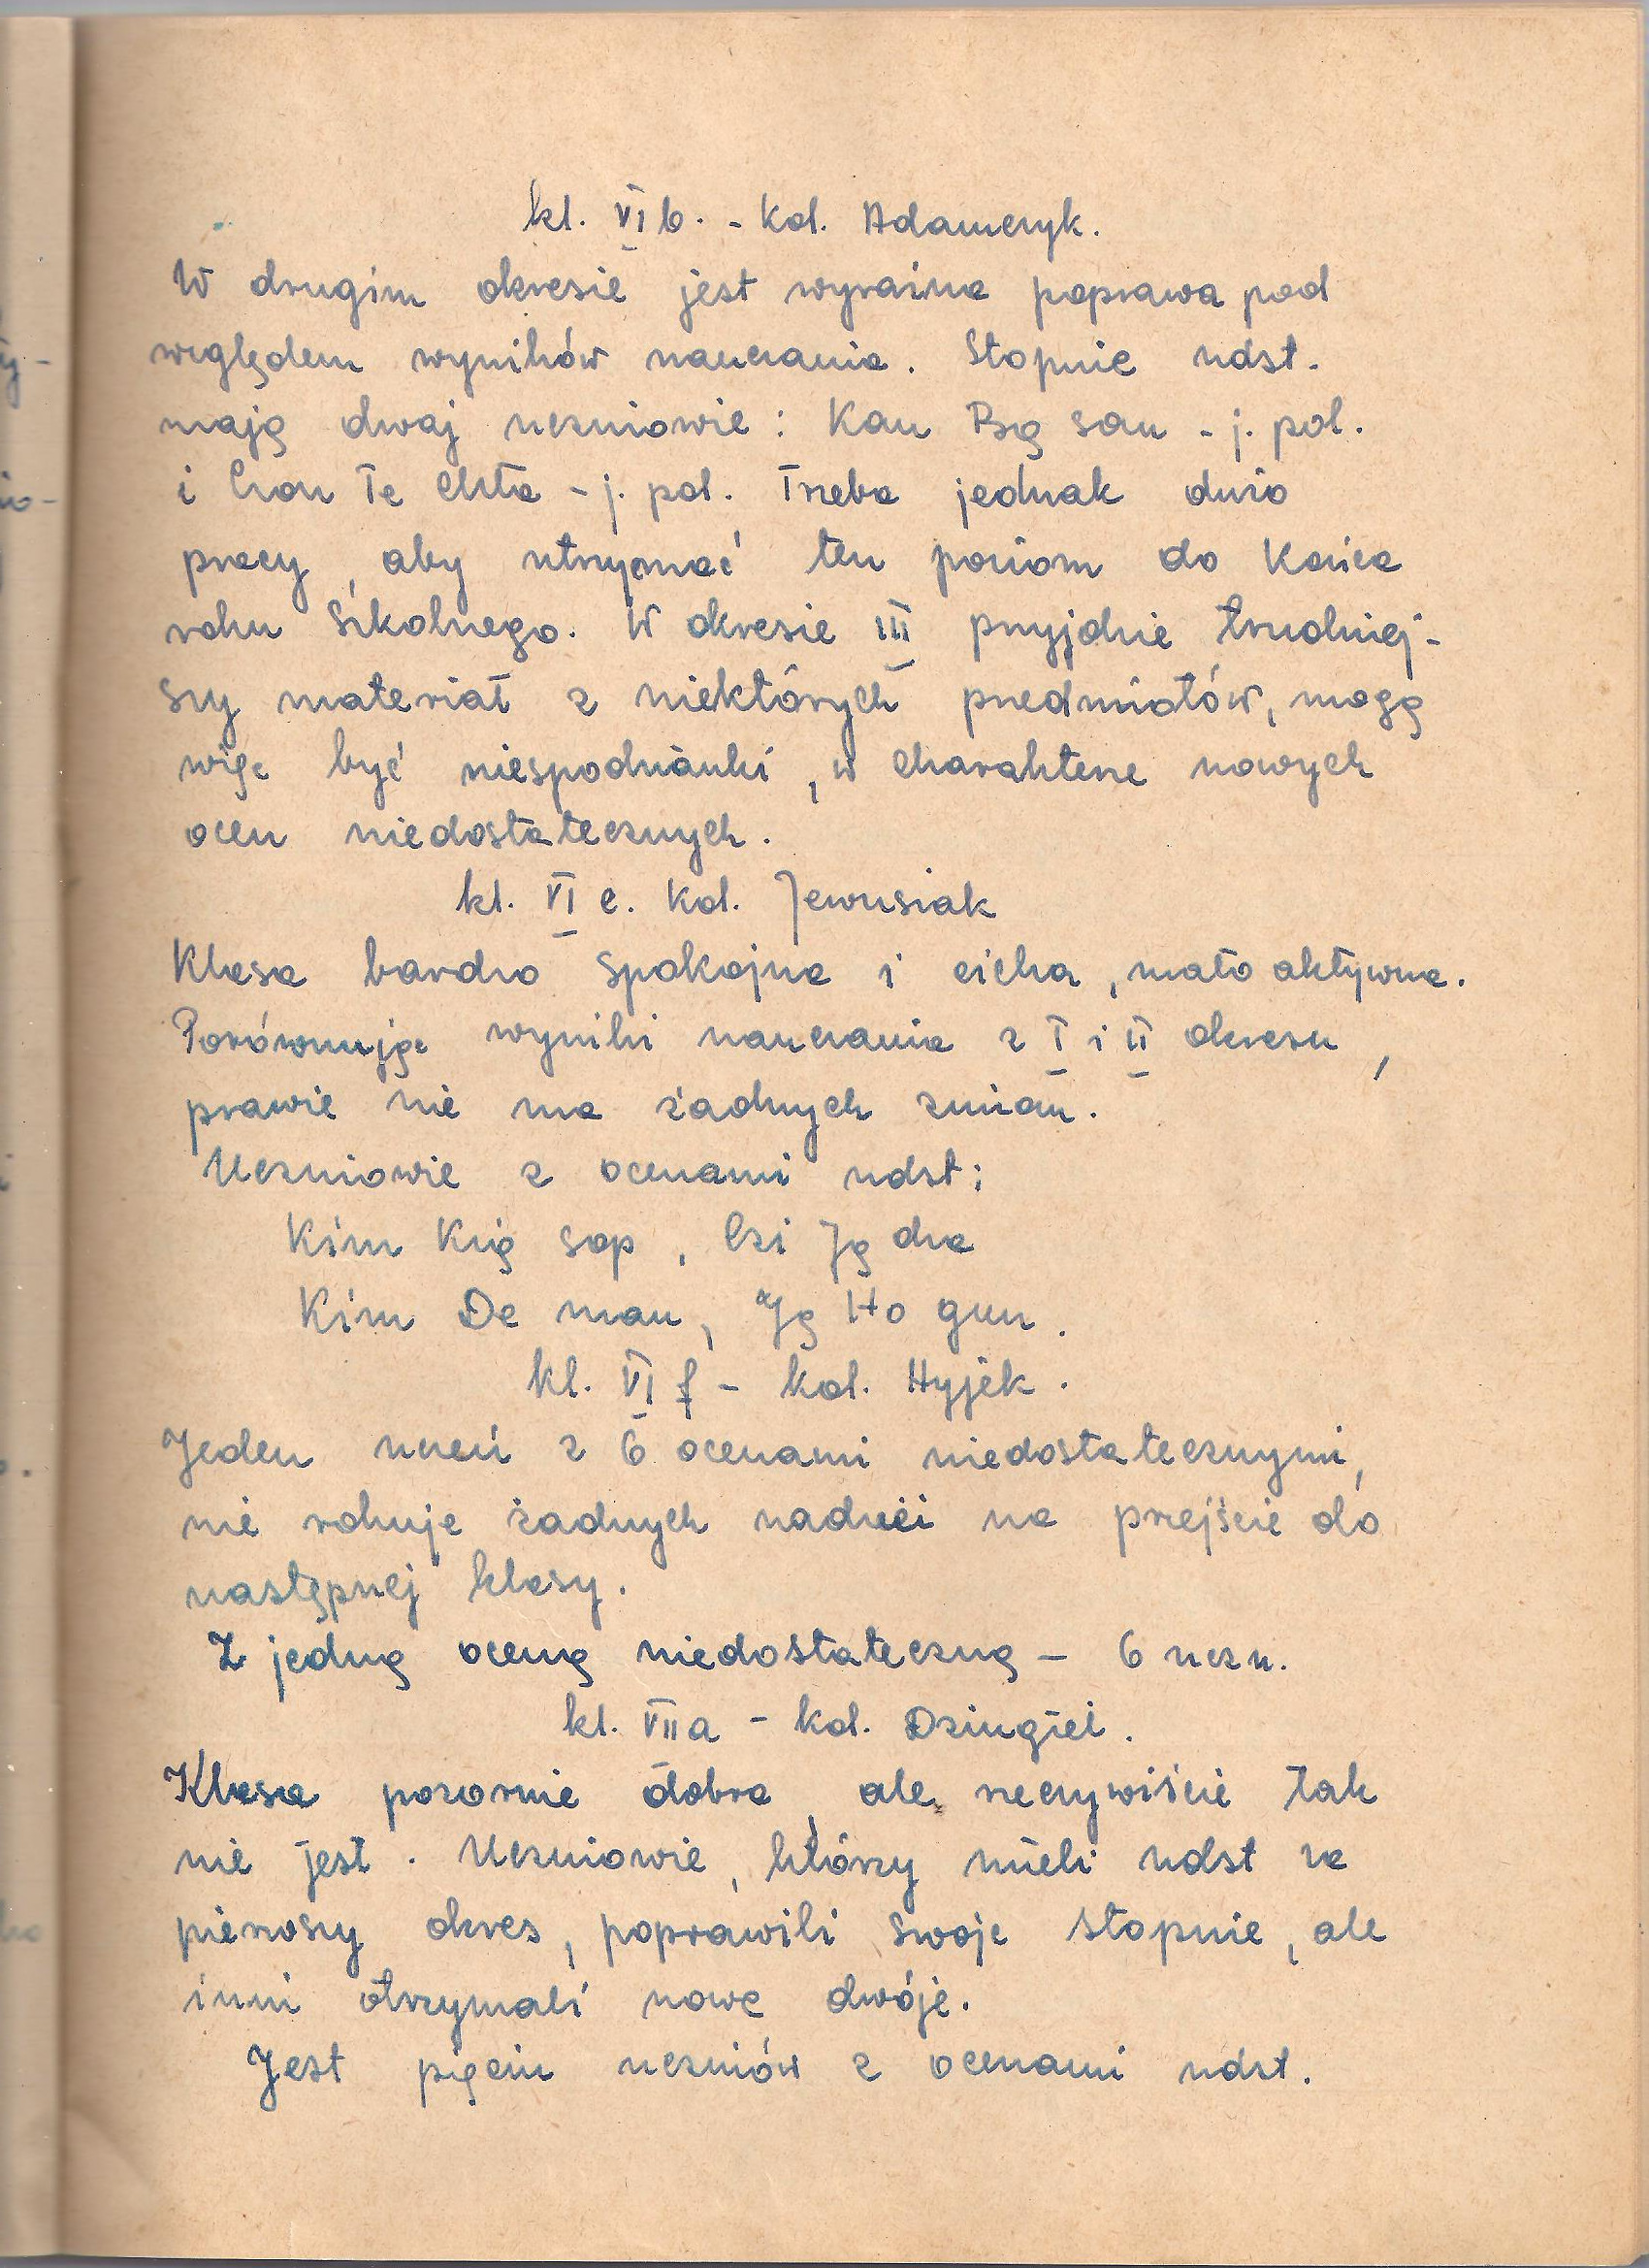 kl. VI b. - kol. Adamczyk.
W drugim okresie jest wyraźna poprawa pod
względem wyników nauczania. Stopnie ndst.
mają dwaj uczniowie: Kan Bą san - j. pol.
i Czon Te Chła - j. pol. Trzeba jednak dużo
pracy, aby utrzymać ten poziom do końca
roku szkolnego. W okresie III przyjdzie trudniej-
szy materiał z niektórych przedmiotów, mogą
więc być niespodzianki, w charakterze nowych
ocen niedostatecznych.
kl. VI e. kol. Jewusiak
Klasa bardzo spokojna i cicha, mało aktywna.
Porównując wyniki nauczania z I i II okresu,
prawie nie ma żadnych zmian.
Uczniowie z ocenami ndst:
Kim Kią sop, Czi Ją dza
Kim De man, Ją Ho gun.
kl. VI f - kol. Hyjek.
Jeden uczeń z 6 ocenami niedostatecznymi,
nie rokuje żadnych nadzieji na przejście do
następnej klasy.
Z jedną oceną niedostateczną - 6 uczn.
kl. VII a - kol. Dziugieł.
Klasa pozornie dobra, ale rzeczywiście tak
nie jest. Uczniowie, którzy mieli ndst za
pierwszy okres, poprawili swoje stopnie, ale
inni otrzymali nowe dwóje.
Jest pięciu uczniów z ocenami ndst.